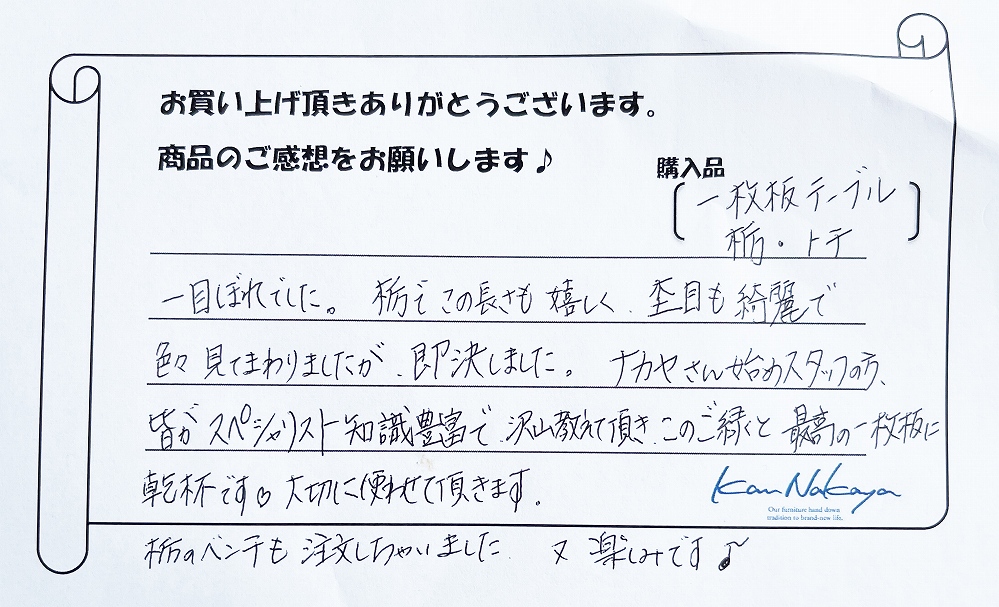 お買い上げ頂きありがとうございます。
商品のご感想をお願いします♪
購入品
一枚板テーブル
栃・トチ
一目ぼれでした。栃でこの長さも嬉しく、杢目も綺麗で
色々見てまわりましたが、即決しました。ナカヤさん始めスタッフの方、
皆がスペシャリスト知識豊富で、沢山教えて頂き、このご縁と最高の一枚板に
乾杯です♡大切に使わせて頂きます。
Kan Nakaya
Our furniture hand down
tradition to brand-new life.
栃のベンチも注文しちゃいました。又楽しみです♪